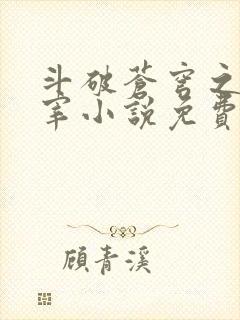 斗破蒼穹之
宰小說免費
顧青溪